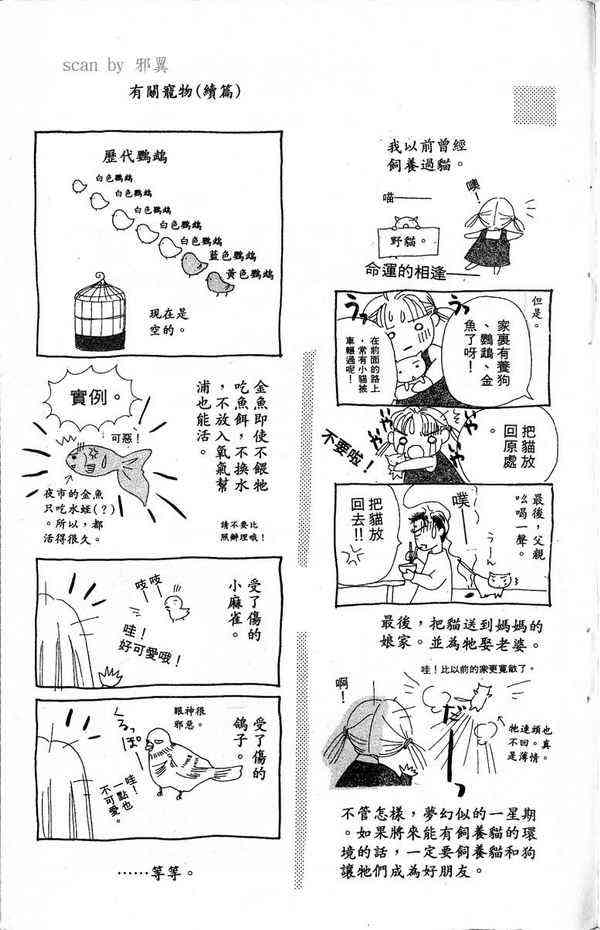 scan by 邪翼
有關寵物(續篇)
我以前曾經
飼養過貓。
噢!
喵——
野貓。
命運的相逢——
但是。
家裏有養狗
、鸚鵡、金
魚了呀!
うっ
在前面的路上
,常有小貓被
車輾過呢!
把貓放
回原處
不要啦!
最後,父親
吆喝一聲。
噗
うーん
把貓放
回去!!
最後,把貓送到媽媽的
娘家。並為牠娶老婆。
哇!比以前的家更寬敞了。
啊!
だーっ
牠連頭也
不回。真
是薄情。
不管怎樣,夢幻似的一星期
。如果將來能有飼養貓的環
境的話,一定要飼養貓和狗
讓牠們成為好朋友。
歷代鸚鵡
白色鸚鵡
白色鸚鵡
白色鸚鵡
白色鸚鵡
白色鸚鵡
藍色鸚鵡
黃色鸚鵡
現在是
空的。
金魚即使不餵牠
吃魚餌,不換水
,不放入氧氣幫
浦也能活。
請不要比
照辦理哦!
實例。
可惡!
夜市的金魚
只吃水蛭(?)
。所以,都
活得很久。
受了傷的
小麻雀。
吱吱——
哇!
好可愛哦!
受了傷的
鴿子。
眼神很
邪惡。
くるっ
ぽー
哇!
一點也
不可愛。
……等等。